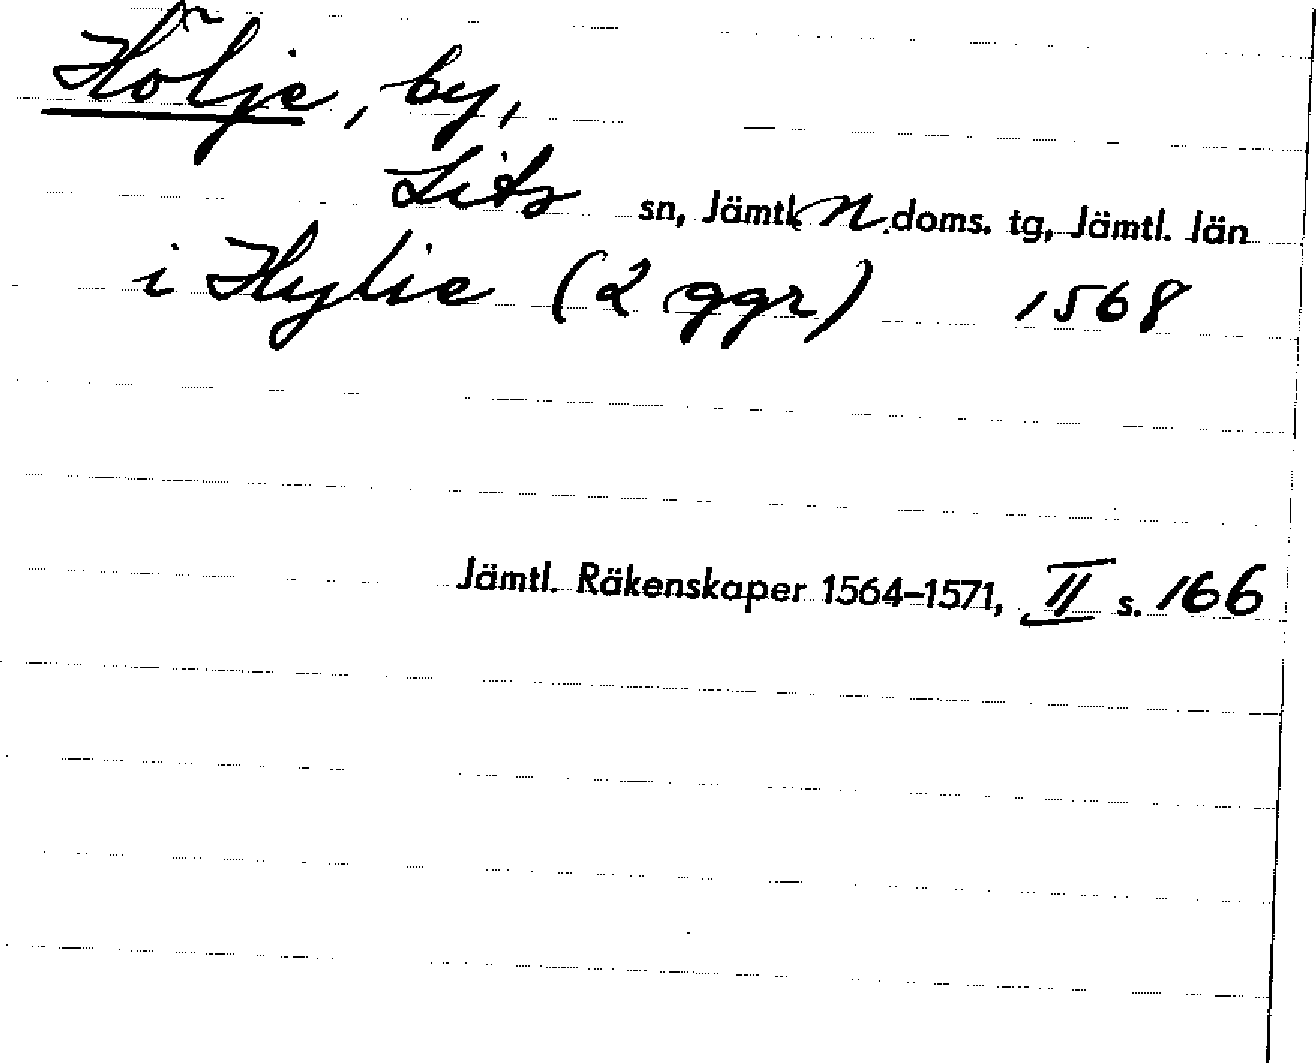 Hölje, by,
Lits sn, Jämtl. N. doms. tg, Jämtl. län
i Hylie (2 ggr) 1568
Jämtl. Räkenskaper 1564–1571, II s. 166